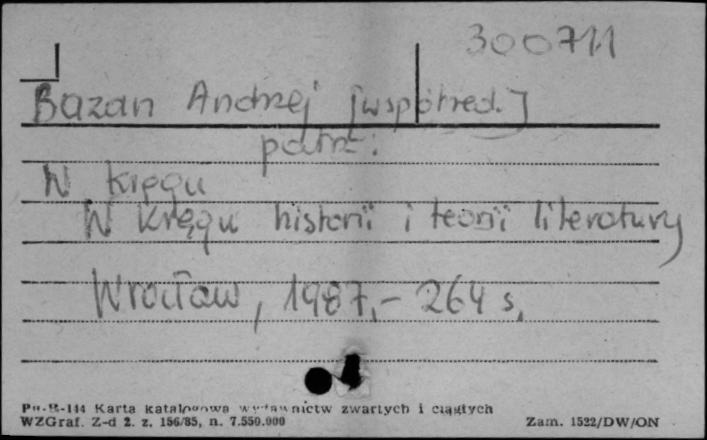 300711
Bazan Andrzej [współred.]
patrz:
W kręgu
W kręgu historii i teorii literatury
Wrocław, 1987.- 264 s.
Pu-B-144 Karta katalogowa wydawnictw zwartych i ciągłych
WZGraf. Z-d 2. z. 156/85, n. 7.550.000
Zam. 1522/DW/ON